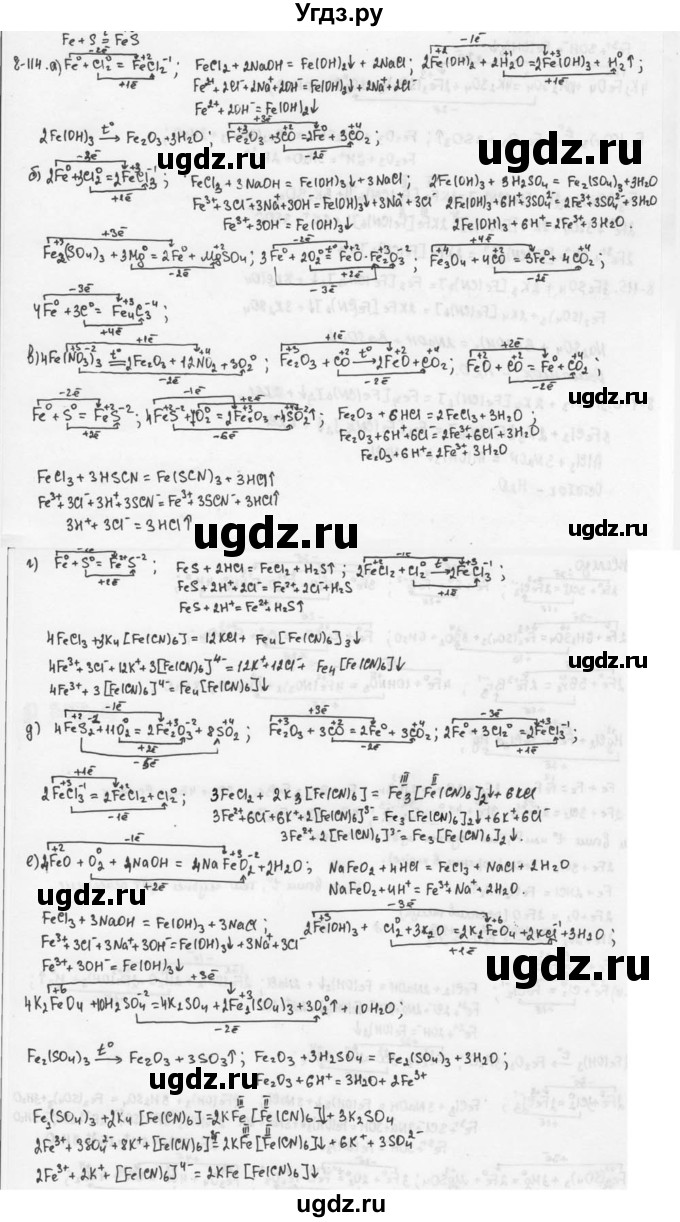 Угдз.ру
Fe + S = FeS
8-114. а) Fe⁰ + Cl₂⁰ = FeCl₂⁻¹; FeCl₂ + 2NaOH = Fe(OH)₂↓ + 2NaCl; 2Fe(OH)₂ + 2H₂O = 2Fe(OH)₃ + H₂⁰↑;
Fe²⁺ + 2Cl⁻ + 2Na⁺ + 2OH⁻ = Fe(OH)₂↓ + 2Na⁺ + 2Cl⁻
Fe²⁺ + 2OH⁻ = Fe(OH)₂↓
2Fe(OH)₃ →t° Fe₂O₃ + 3H₂O; Fe₂O₃ + 3CO = 2Fe⁰ + 3CO₂;
б) 2Fe⁰ + 3Cl₂⁰ = 2FeCl₃⁻¹; FeCl₃ + 3NaOH = Fe(OH)₃↓ + 3NaCl; 2Fe(OH)₃ + 3H₂SO₄ = Fe₂(SO₄)₃ + 3H₂O
Fe³⁺ + 3Cl⁻ + 3Na⁺ + 3OH⁻ = Fe(OH)₃↓ + 3Na⁺ + 3Cl⁻ 2Fe(OH)₃ + 6H⁺ + 3SO₄²⁻ = 2Fe³⁺ + 3SO₄²⁻ + 3H₂O
Fe³⁺ + 3OH⁻ = Fe(OH)₃↓ 2Fe(OH)₃ + 6H⁺ = 2Fe³⁺ + 3H₂O.
Fe₂(SO₄)₃ + 3Mg⁰ = 2Fe⁰ + MgSO₄; 3Fe⁰ + 2O₂⁰ =t° FeO·Fe₂O₃; Fe₃O₄ + 4CO = 3Fe⁰ + 4CO₂;
4Fe⁰ + 3C⁰ = Fe₄C₃⁻⁴;
в) 4Fe(NO₃)₃ =t° 2Fe₂O₃ + 12NO₂ + 3O₂⁰; Fe₂O₃ + CO →t° 2FeO + CO₂; FeO + CO = Fe⁰ + CO₂;
Fe⁰ + S⁰ = FeS⁻²; 4FeS + 7O₂⁰ = 2Fe₂O₃ + 4SO₂↑; Fe₂O₃ + 6HCl = 2FeCl₃ + 3H₂O;
Fe₂O₃ + 6H⁺ + 6Cl⁻ = 2Fe³⁺ + 6Cl⁻ + 3H₂O
Fe₂O₃ + 6H⁺ = 2Fe³⁺ + 3H₂O
FeCl₃ + 3HSCN = Fe(SCN)₃ + 3HCl↑
Fe³⁺ + 3Cl⁻ + 3H⁺ + 3SCN⁻ = Fe³⁺ + 3SCN⁻ + 3HCl↑
3H⁺ + 3Cl⁻ = 3HCl↑
г) Fe⁰ + S⁰ = FeS⁻²; FeS + 2HCl = FeCl₂ + H₂S↑; 2FeCl₂ + Cl₂⁰ →t° 2FeCl₃⁻¹;
FeS + 2H⁺ + 2Cl⁻ = Fe²⁺ + 2Cl⁻ + H₂S
FeS + 2H⁺ = Fe²⁺ + H₂S↑
4FeCl₃ + 3K₄[Fe(CN)₆] = 12KCl + Fe₄[Fe(CN)₆]₃↓
4Fe³⁺ + 3Cl⁻ + 12K⁺ + 3[Fe(CN)₆]⁴⁻ = 12K⁺ + 12Cl⁻ + Fe₄[Fe(CN)₆]↓
4Fe³⁺ + 3[Fe(CN)₆]⁴⁻ = Fe₄[Fe(CN)₆]↓
д) 4FeS₂ + 11O₂⁰ = 2Fe₂O₃ + 8SO₂; Fe₂O₃ + 3CO = 2Fe⁰ + 3CO₂; 2Fe⁰ + 3Cl₂⁰ = 2FeCl₃⁻¹;
2FeCl₃⁻¹ = 2FeCl₂ + Cl₂⁰; 3FeCl₂ + 2K₃[Fe(CN)₆] = Fe₃[Fe(CN)₆]₂↓ + 6KCl
3Fe²⁺ + 6Cl⁻ + 6K⁺ + 2[Fe(CN)₆]³⁻ = Fe₃[Fe(CN)₆]₂↓ + 6K⁺ + 6Cl⁻
3Fe²⁺ + 2[Fe(CN)₆]³⁻ = Fe₃[Fe(CN)₆]₂↓.
е) 4FeO + O₂ + 4NaOH = 4NaFeO₂ + 2H₂O; NaFeO₂ + 4HCl = FeCl₃ + NaCl + 2H₂O
NaFeO₂ + 4H⁺ = Fe³⁺ + Na⁺ + 2H₂O.
FeCl₃ + 3NaOH = Fe(OH)₃ + 3NaCl; 2Fe(OH)₃ + Cl₂⁰ + 3K₂O = 2K₂FeO₄ + 2KCl⁻¹ + 3H₂O;
Fe³⁺ + 3Cl⁻ + 3Na⁺ + 3OH⁻ = Fe(OH)₃↓ + 3Na⁺ + 3Cl⁻
Fe³⁺ + 3OH⁻ = Fe(OH)₃↓
4K₂FeO₄ + 10H₂SO₄ = 4K₂SO₄ + 2Fe₂(SO₄)₃ + 3O₂⁰↑ + 10H₂O;
Fe₂(SO₄)₃ →t° Fe₂O₃ + 3SO₃↑; Fe₂O₃ + 3H₂SO₄ = Fe₂(SO₄)₃ + 3H₂O;
Fe₂O₃ + 6H⁺ = 3H₂O + 2Fe³⁺
Fe₂(SO₄)₃ + 2K₄[Fe(CN)₆] = 2KFe[Fe(CN)₆]↓ + 3K₂SO₄
2Fe³⁺ + 3SO₄²⁻ + 8K⁺ + [Fe(CN)₆]⁴⁻ = 2KFe[Fe(CN)₆]↓ + 6K⁺ + 3SO₄²⁻
2Fe³⁺ + 2K⁺ + [Fe(CN)₆]⁴⁻ = 2KFe[Fe(CN)₆]↓
ugdz.ru